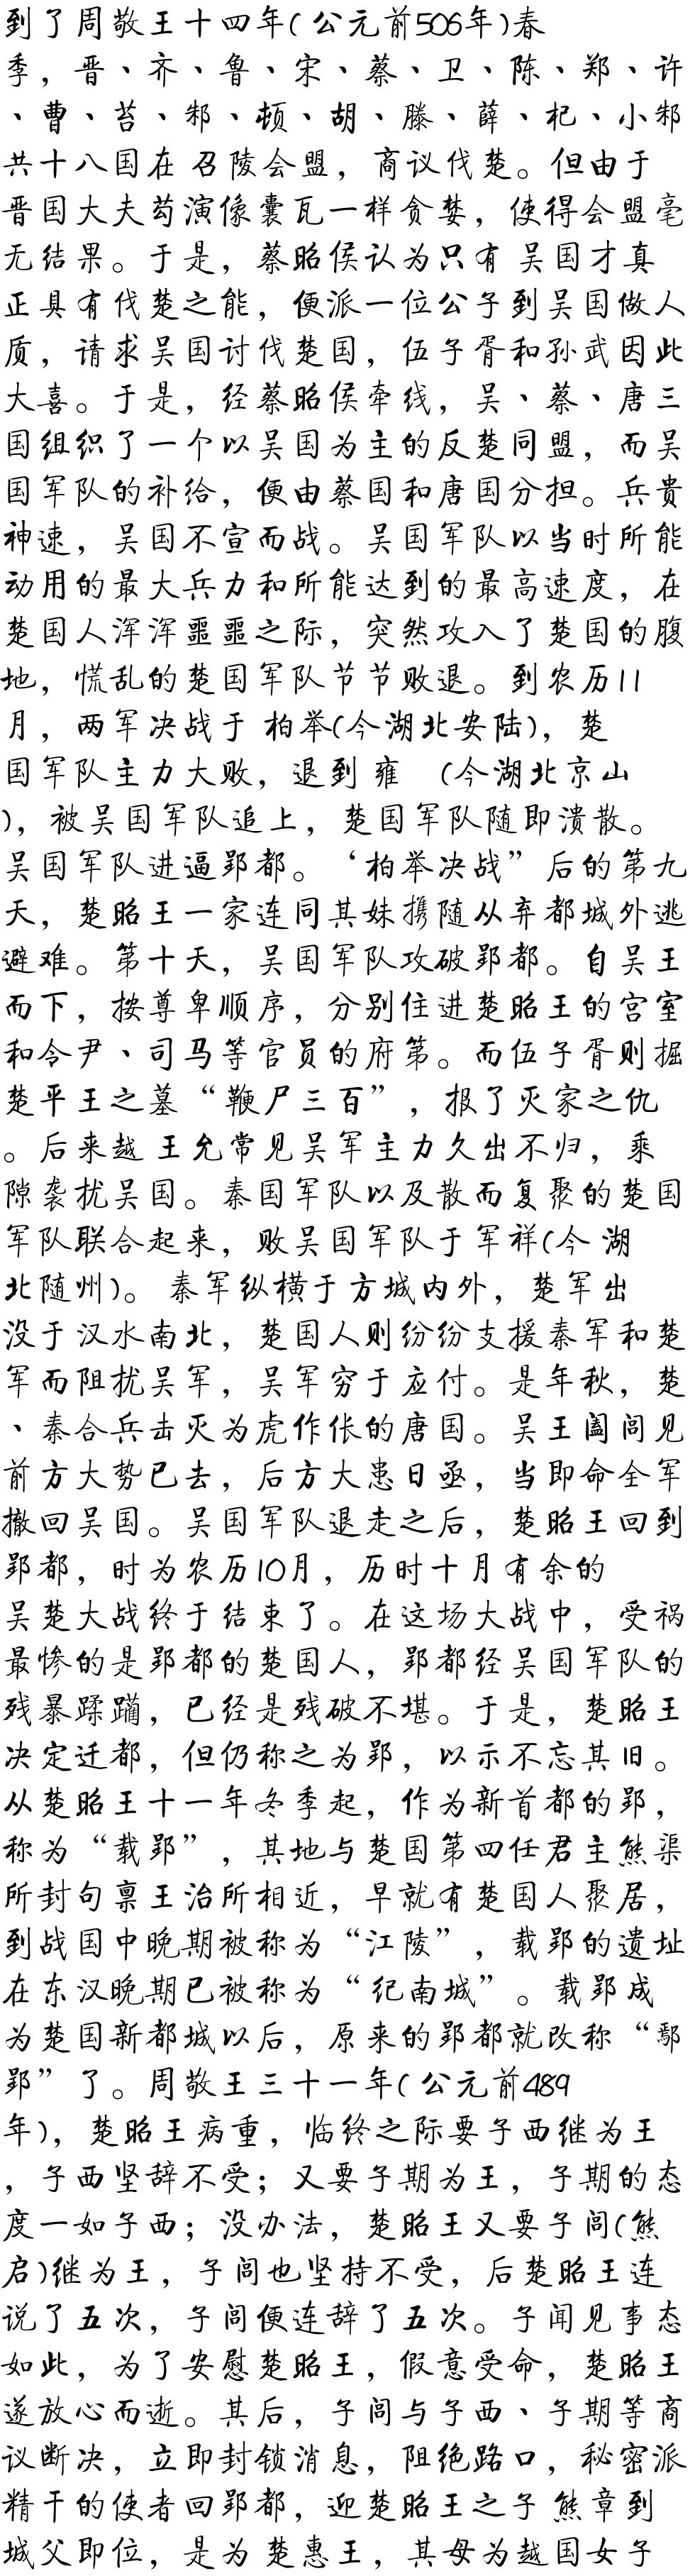 到了周敬王十四年(公元前506年)春
季，晋、齐、鲁、宋、蔡、卫、陈、郑、许
、曹、莒、邾、顿、胡、滕、薛、杞、小邾
共十八国在 召陵会盟，商议伐楚。但由于
晋国大夫茍演像囊瓦一样贪婪，使得会盟毫
无结果。于是，蔡昭侯认为只有 吴国才真
正具有伐楚之能，便派一位公子到吴国做人
质，请求吴国讨伐楚国，伍子胥和孙武因此
大喜。于是，经蔡昭侯牵线，吴、蔡、唐三
国组织了一个以吴国为主的反楚同盟，而吴
国军队的补给，便由蔡国和唐国分担。兵贵
神速，吴国不宣而战。吴国军队以当时所能
动用的最大兵力和所能达到的最高速度，在
楚国人浑浑噩噩之际，突然攻入了楚国的腹
地，慌乱的楚国军队节节败退。到农历11
月，两军决战于 柏举(今湖北安陆)，楚
国军队主力大败，退到 雍 (今湖北京山
)，被吴国军队追上，楚国军队随即溃散。
吴国军队进逼郢都。‘柏举决战”后的第九
天，楚昭王一家连同其妹携随从弃都城外逃
避难。第十天，吴国军队攻破郢都。自吴王
而下，按尊卑顺序，分别住进楚昭王的宫室
和令尹、司马等官员的府第。而伍子胥则掘
楚平王之墓“鞭尸三百”，报了灭家之仇
。后来越 王允常见吴军主力久出不归，乘
隙袭扰吴国。秦国军队以及散而复聚的楚国
军队联合起来，败吴国军队于军祥(今 湖
北随州)。秦军纵横于方城内外，楚军出
没于汉水南北，楚国人则纷纷支援秦军和楚
军而阻扰吴军，吴军穷于应付。是年秋，楚
、秦合兵击灭为虎作伥的唐国。吴王阖闾见
前方大势已去，后方大患日亟，当即命全军
撤回吴国。吴国军队退走之后，楚昭王回到
郢都，时为农历10月，历时十月有余的
吴楚大战终于结束了。在这场大战中，受祸
最惨的是郢都的楚国人，郢都经吴国军队的
残暴蹂躏，已经是残破不堪。于是，楚昭王
决定迁都，但仍称之为郢，以示不忘其旧。
从楚昭王十一年冬季起，作为新首都的郢，
称为“载郢”，其地与楚国第四任君主熊渠
所封句禀王治所相近，早就有楚国人聚居，
到战国中晚期被称为“江陵”，载郢的遗址
在东汉晚期已被称为“纪南城”。载郢成
为楚国新都城以后，原来的郢都就改称“鄢
郢”了。周敬王三十一年(公元前489
年)，楚昭王病重，临终之际要子西继为王
，子西坚辞不受；又要子期为王，子期的态
度一如子西；没办法，楚昭王又要子闾(熊
启)继为王，子闾也坚持不受，后楚昭王连
说了五次，子闾便连辞了五次。子闻见事态
如此，为了安慰楚昭王，假意受命，楚昭王
遂放心而逝。其后，子闾与子西、子期等商
议断决，立即封锁消息，阻绝路口，秘密派
精干的使者回郢都，迎楚昭王之子 熊章到
城父即位，是为 楚惠王，其母为越国女子